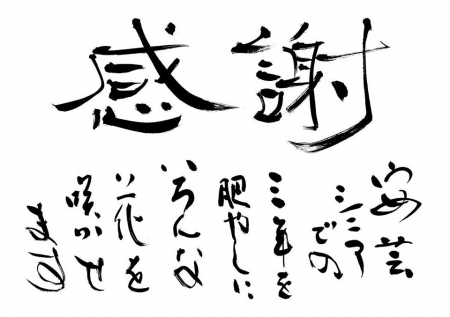 感謝
安芸
シニアでの
三年を
肥やしに
いろんな
花を
咲かせ